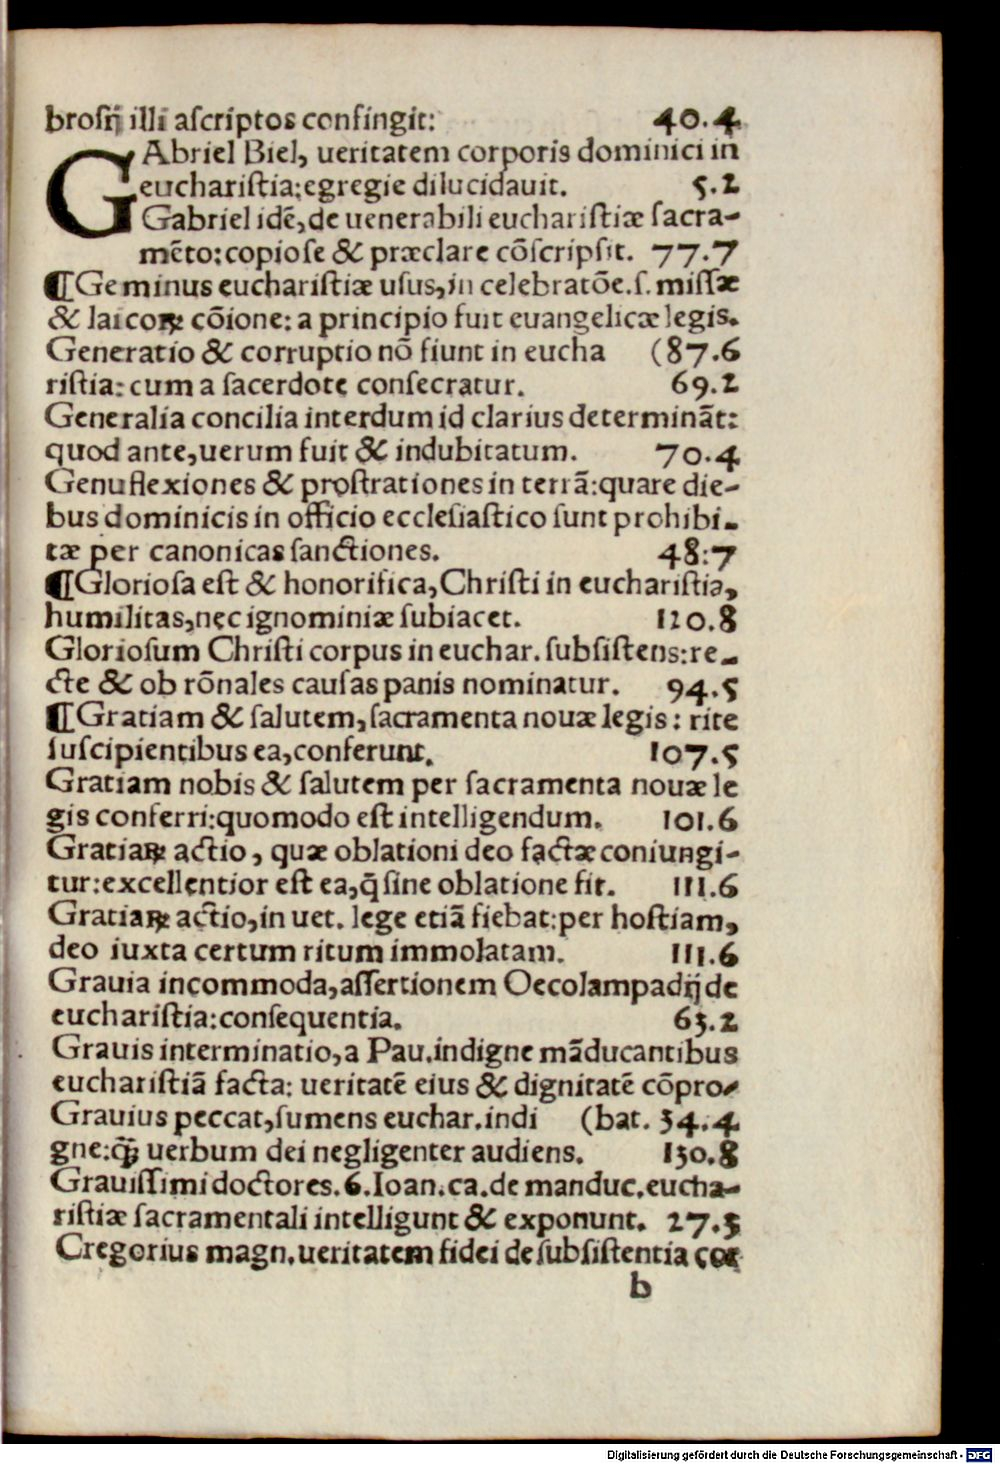 broſij illi aſcriptos confingit: 40.4
GAbriel Biel, ueritatem corporis dominici in
euchariſtia:egregie dilucidauit. 5.2
Gabriel idẽ,de uenerabili euchariſtiæ ſacra-
mẽto:copioſe & præclare cõſcripſit. 77.7
¶Geminus euchariſtiæ uſus,in celebratõe.ſ.miſſæ
& laicoꝝ cõione: a principio fuit euangelicæ legis.
Generatio & corruptio nõ fiunt in eucha (87.6
riſtia: cum a ſacerdote conſecratur. 69.2
Generalia concilia interdum id clarius determinãt:
quod ante,uerum fuit & indubitatum. 70.4
Genuflexiones & proſtrationes in terrã:quare die-
bus dominicis in officio eccleſiaſtico ſunt prohibi-
tæ per canonicas ſanctiones. 48:7
¶Glorioſa eſt & honorifica,Chriſti in euchariſtia,
humilitas,nec ignominiæ ſubiacet. 120.8
Glorioſum Chriſti corpus in euchar. ſubſiſtens:re-
cte & ob rõnales cauſas panis nominatur. 94.5
¶Gratiam & ſalutem,ſacramenta nouæ legis: rite
ſuſcipientibus ea,conferunt. 107.5
Gratiam nobis & ſalutem per ſacramenta nouæ le
gis conferri:quomodo eſt intelligendum. 101.6
Gratiaꝝ actio, quæ oblationi deo factæ coniungi-
tur:excellentior eſt ea,q̃ ſine oblatione fit. 111.6
Gratiaꝝ actio,in uet. lege etiã fiebat:per hoſtiam,
deo iuxta certum ritum immolatam. 111.6
Grauia incommoda,aſſertionem Oecolampadij de
euchariſtia:conſequentia. 63.2
Grauis interminatio,a Pau.indigne mãducantibus
euchariſtiã facta: ueritatẽ eius & dignitatẽ cõpro-
Grauius peccat,ſumens euchar.indi (bat. 34.4
gne:q̃ꝫ uerbum dei negligenter audiens. 130.8
Grauiſſimi doctores.6.Ioan.ca.de manduc.eucha-
riſtiæ ſacramentali intelligunt & exponunt. 27.3
Gregorius magn.ueritatem fidei de ſubſiſtentia cor
b
Digitalisierung gefördert durch die Deutsche Forschungsgemeinschaft - DFG